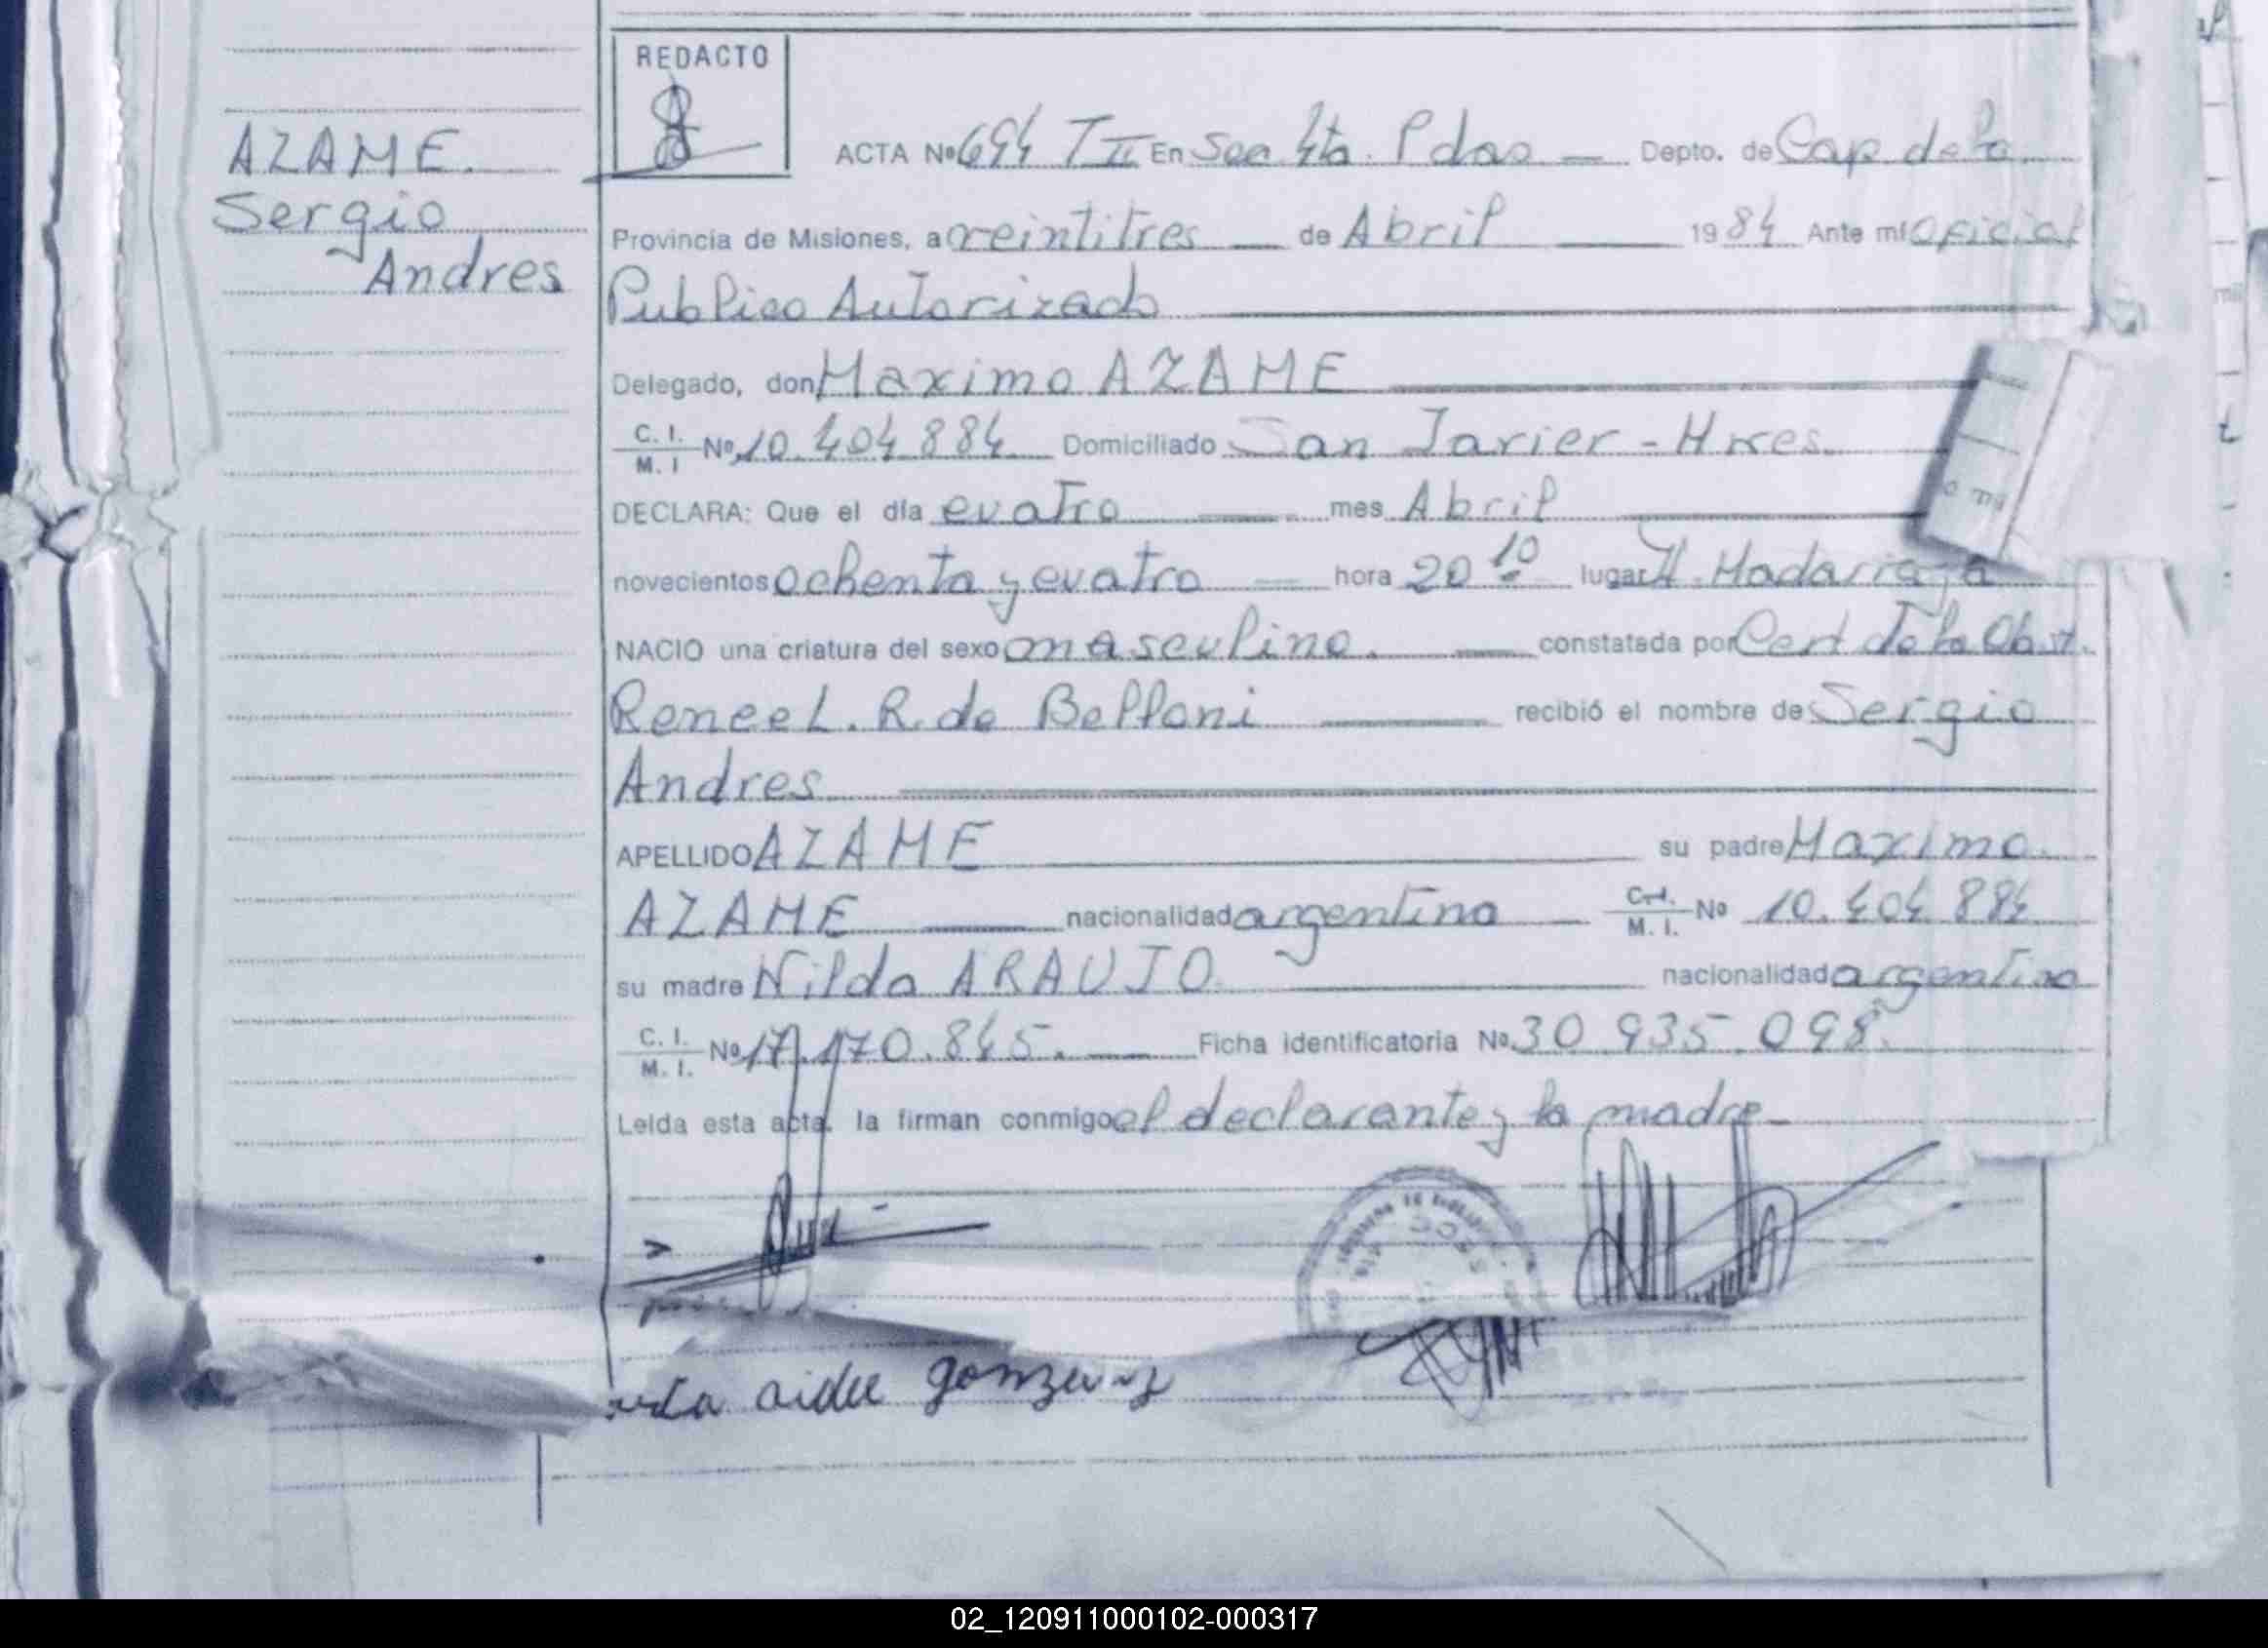 REDACTO
AZAME.
Sergio
Andres
ACTA Nº 694 T II En Sec 4ta. Pdas — Depto. de Cap. de la
Provincia de Misiones, a veintitres — de Abril — 1984 Ante mí Oficial
Publico Autorizado
Delegado, don Maximo AZAME
C. I. / M. I Nº 10.404.884 Domiciliado San Javier - Mnes.
DECLARA: Que el día cuatro — mes Abril
novecientos ochenta y cuatro — hora 20 10 lugar H. Madariaga
NACIO una criatura del sexo masculino. — constatada por Cert de la Obst.
Renee L. R. de Belloni — recibió el nombre de Sergio
Andres
APELLIDO AZAME su padre Maximo.
AZAME — nacionalidad argentino — C. I. / M. I. Nº 10.404.884
su madre Nilda ARAUJO. nacionalidad argentina
C. I. / M. I. Nº 17.170.845. — Ficha identificatoria Nº 30.935.098.
Leída esta acta, la firman conmigo el declarante y la madre —
aidee
02_120911000102-000317